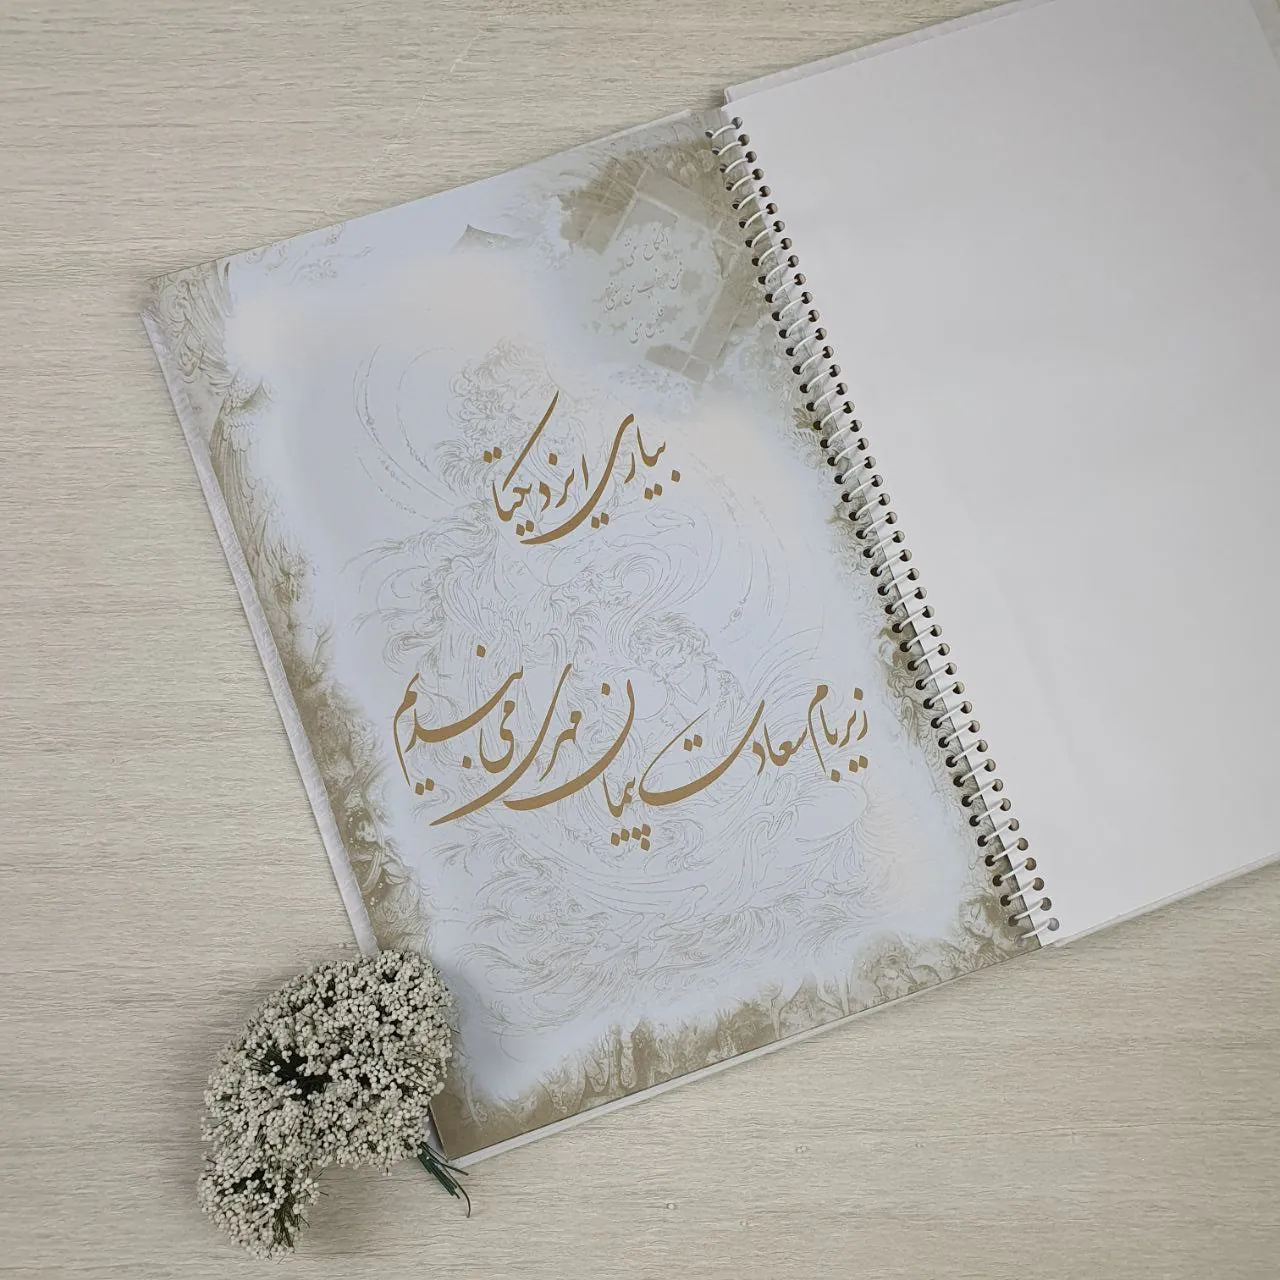 بیاری ایزد یکتا
زیر بام سعادت پیمان مهری می بندیم